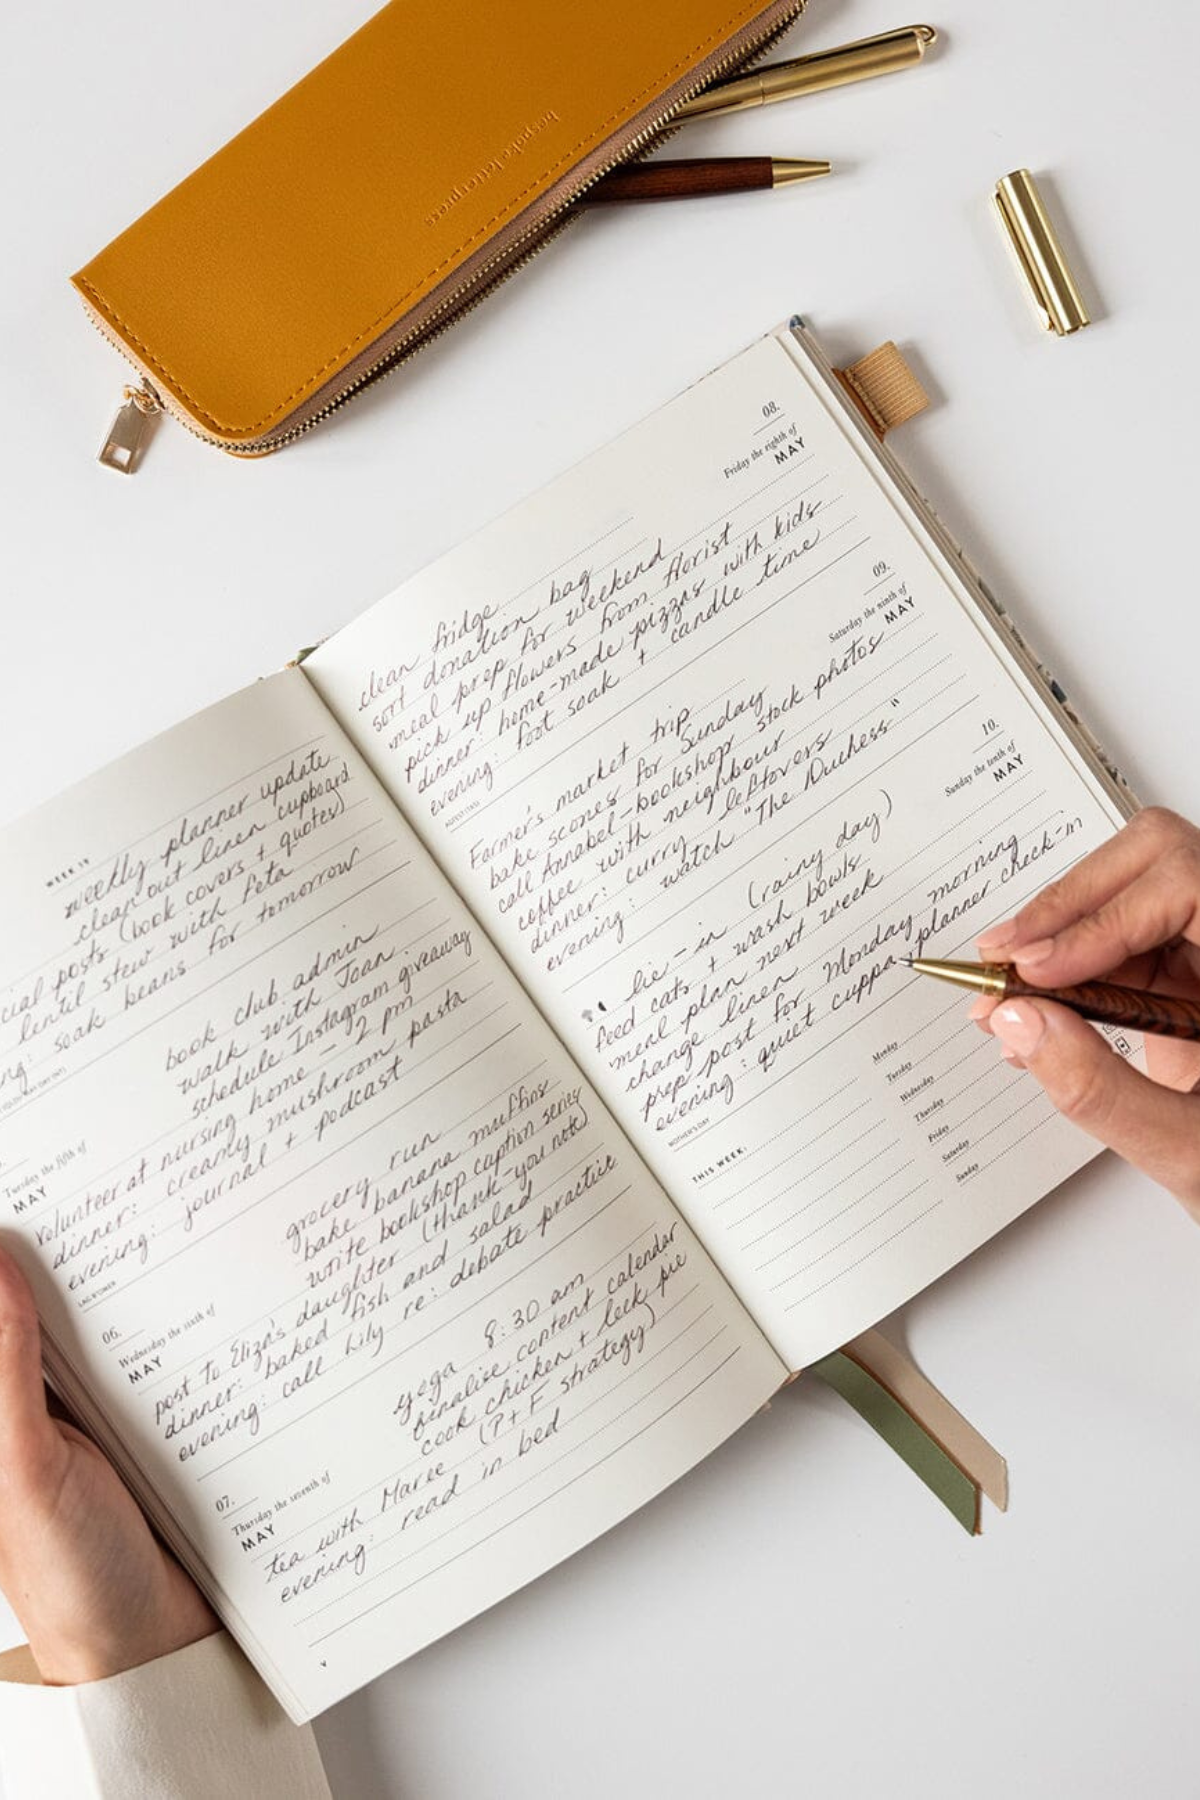 bespoke letterpress
WEEK 19
weekly planner update
clean out linen cupboard
posts (book covers + quotes)
lentil stew with feta
soak beans for tomorrow
Tuesday the fifth of
MAY
book club admin
walk with Joan
schedule Instagram giveaway
volunteer at nursing home - 2 pm
dinner: creamy mushroom pasta
evening: journal + podcast
06.
Wednesday the sixth of
MAY
grocery run
bake banana muffins
write bookshop caption series
post to Eliza's daughter (thank-you note)
dinner: baked fish and salad
evening: call Lily re: debate practice
07.
Thursday the seventh of
MAY
yoga 8:30 am
finalise content calendar
cook chicken + leek pie
tea with Maree (P+F strategy)
evening: read in bed
08.
Friday the eighth of
MAY
clean fridge
sort donation bag
meal prep for weekend
pick up flowers from florist
dinner: home-made pizzas with kids
evening: foot soak + candle time
09.
Saturday the ninth of
MAY
Farmer's market trip
bake scones for Sunday
call Annabel - bookshop stock photos
coffee with neighbour
dinner: curry leftovers
evening: watch "The Duchess"
10.
Sunday the tenth of
MAY
lie-in (rainy day)
feed cats + wash bowls
meal plan next week
change linen
prep post for Monday morning
evening: quiet cuppa + planner check-in
MOTHER'S DAY
THIS WEEK:
Monday
Tuesday
Wednesday
Thursday
Friday
Saturday
Sunday